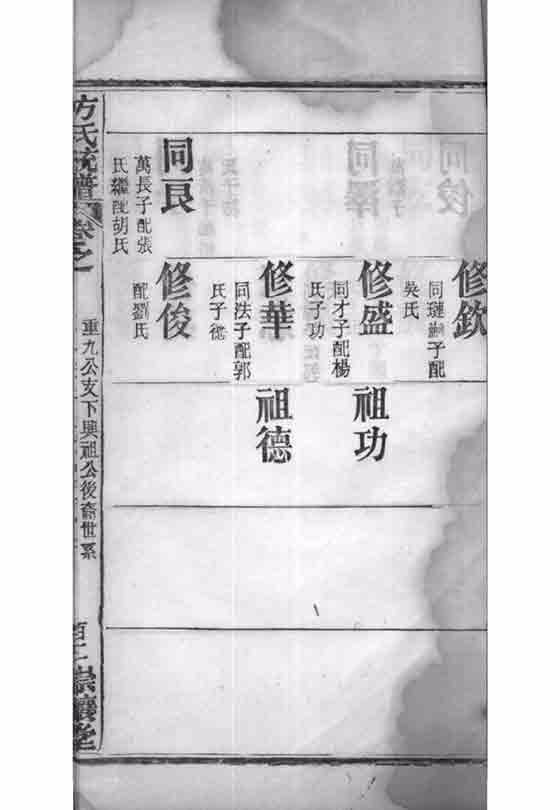 修欽
同璉繼子配
吳氏
修盛
同才子配楊
氏子功
祖功
修華
同法子配郭
氏子德
祖德
同良
萬長子配張
氏繼配胡氏
修俊
配劉氏
方氏統譜
卷之一
重九公支下興祖公後裔世系
百二 崇讓堂